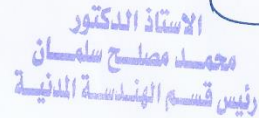 الاستاذ الدكتور
محمد مصلح سلمان
رئيس قسم الهندسة المدنية